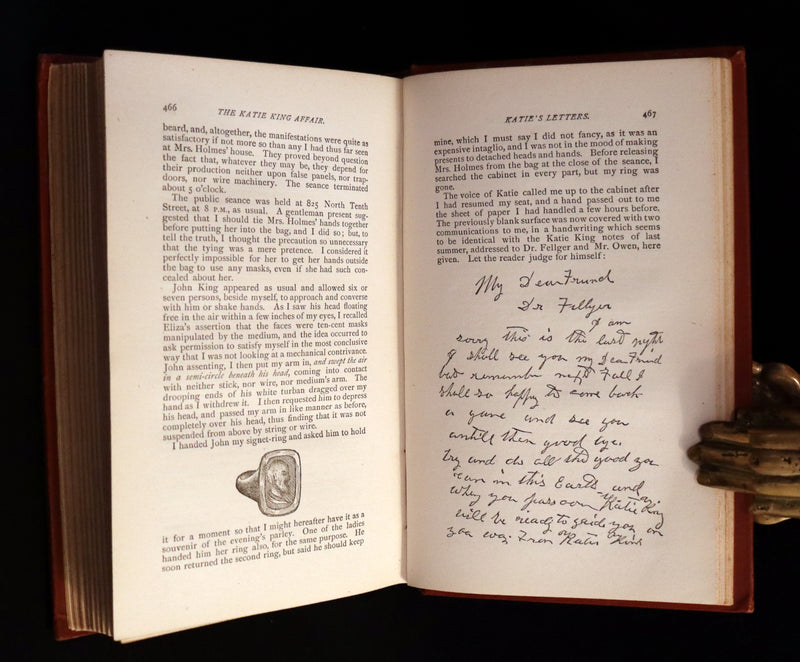 466
THE KATIE KING AFFAIR.
beard, and, altogether, the manifestations were quite as
satisfactory if not more so than any I had thus far seen
at Mrs. Holmes' house. They proved beyond question
the fact that, whatever they may be, they depend for
their production neither upon false panels, nor trap-
doors, nor wire machinery. The seance terminated
about 5 o'clock.
The public seance was held at 825 North Tenth
Street, at 8 P.M., as usual. A gentleman present sug-
gested that I should tie Mrs. Holmes' hands together
before putting her into the bag, and I did so; but, to
tell the truth, I thought the precaution so unnecessary
that the tying was a mere pretence. I considered it
perfectly impossible for her to get her hands outside
the bag to use any masks, even if she had such con-
cealed about her.
John King appeared as usual and allowed six or
seven persons, beside myself, to approach and converse
with him or shake hands. As I saw his head floating
free in the air within a few inches of my eyes, I recalled
Eliza's assertion that the faces were ten-cent masks
manipulated by the medium, and the idea occurred to
ask permission to satisfy myself in the most conclusive
way that I was not looking at a mechanical contrivance.
John assenting, I then put my arm in, and swept the air
in a semi-circle beneath his head, coming into contact
with neither stick, nor wire, nor medium's arm. The
drooping ends of his white turban dragged over my
hand as I withdrew it. I then requested him to depress
his head, and passed my arm in like manner as before,
completely over his head, thus finding that it was not
suspended from above by string or wire.
I handed John my signet-ring and asked him to hold
it for a moment so that I might hereafter have it as a
souvenir of the evening's parley. One of the ladies
handed him her ring also, for the same purpose. He
soon returned the second ring, but said he should keep
KATIE'S LETTERS.
467
mine, which I must say I did not fancy, as it was an
expensive intaglio, and I was not in the mood of making
presents to detached heads and hands. Before releasing
Mrs. Holmes from the bag at the close of the seance, I
searched the cabinet in every part, but my ring was
gone.
The voice of Katie called me up to the cabinet after
I had resumed my seat, and a hand passed out to me
the sheet of paper I had handled a few hours before.
The previously blank surface was now covered with two
communications to me, in a handwriting which seems
to be identical with the Katie King notes of last
summer, addressed to Dr. Fellger and Mr. Owen, here
given. Let the reader judge for himself:
My Dear Frund
Dr Fellger
I am
sorry this is the last night
I shall see you my Dear Frind
but remember next Fall I
shall so happy to come back
a gane and see you
untill then good bye.
try and do all the good you
can in this Earth and
when you pass on Katie King
will be ready to gaide you on
you way. From Katie King